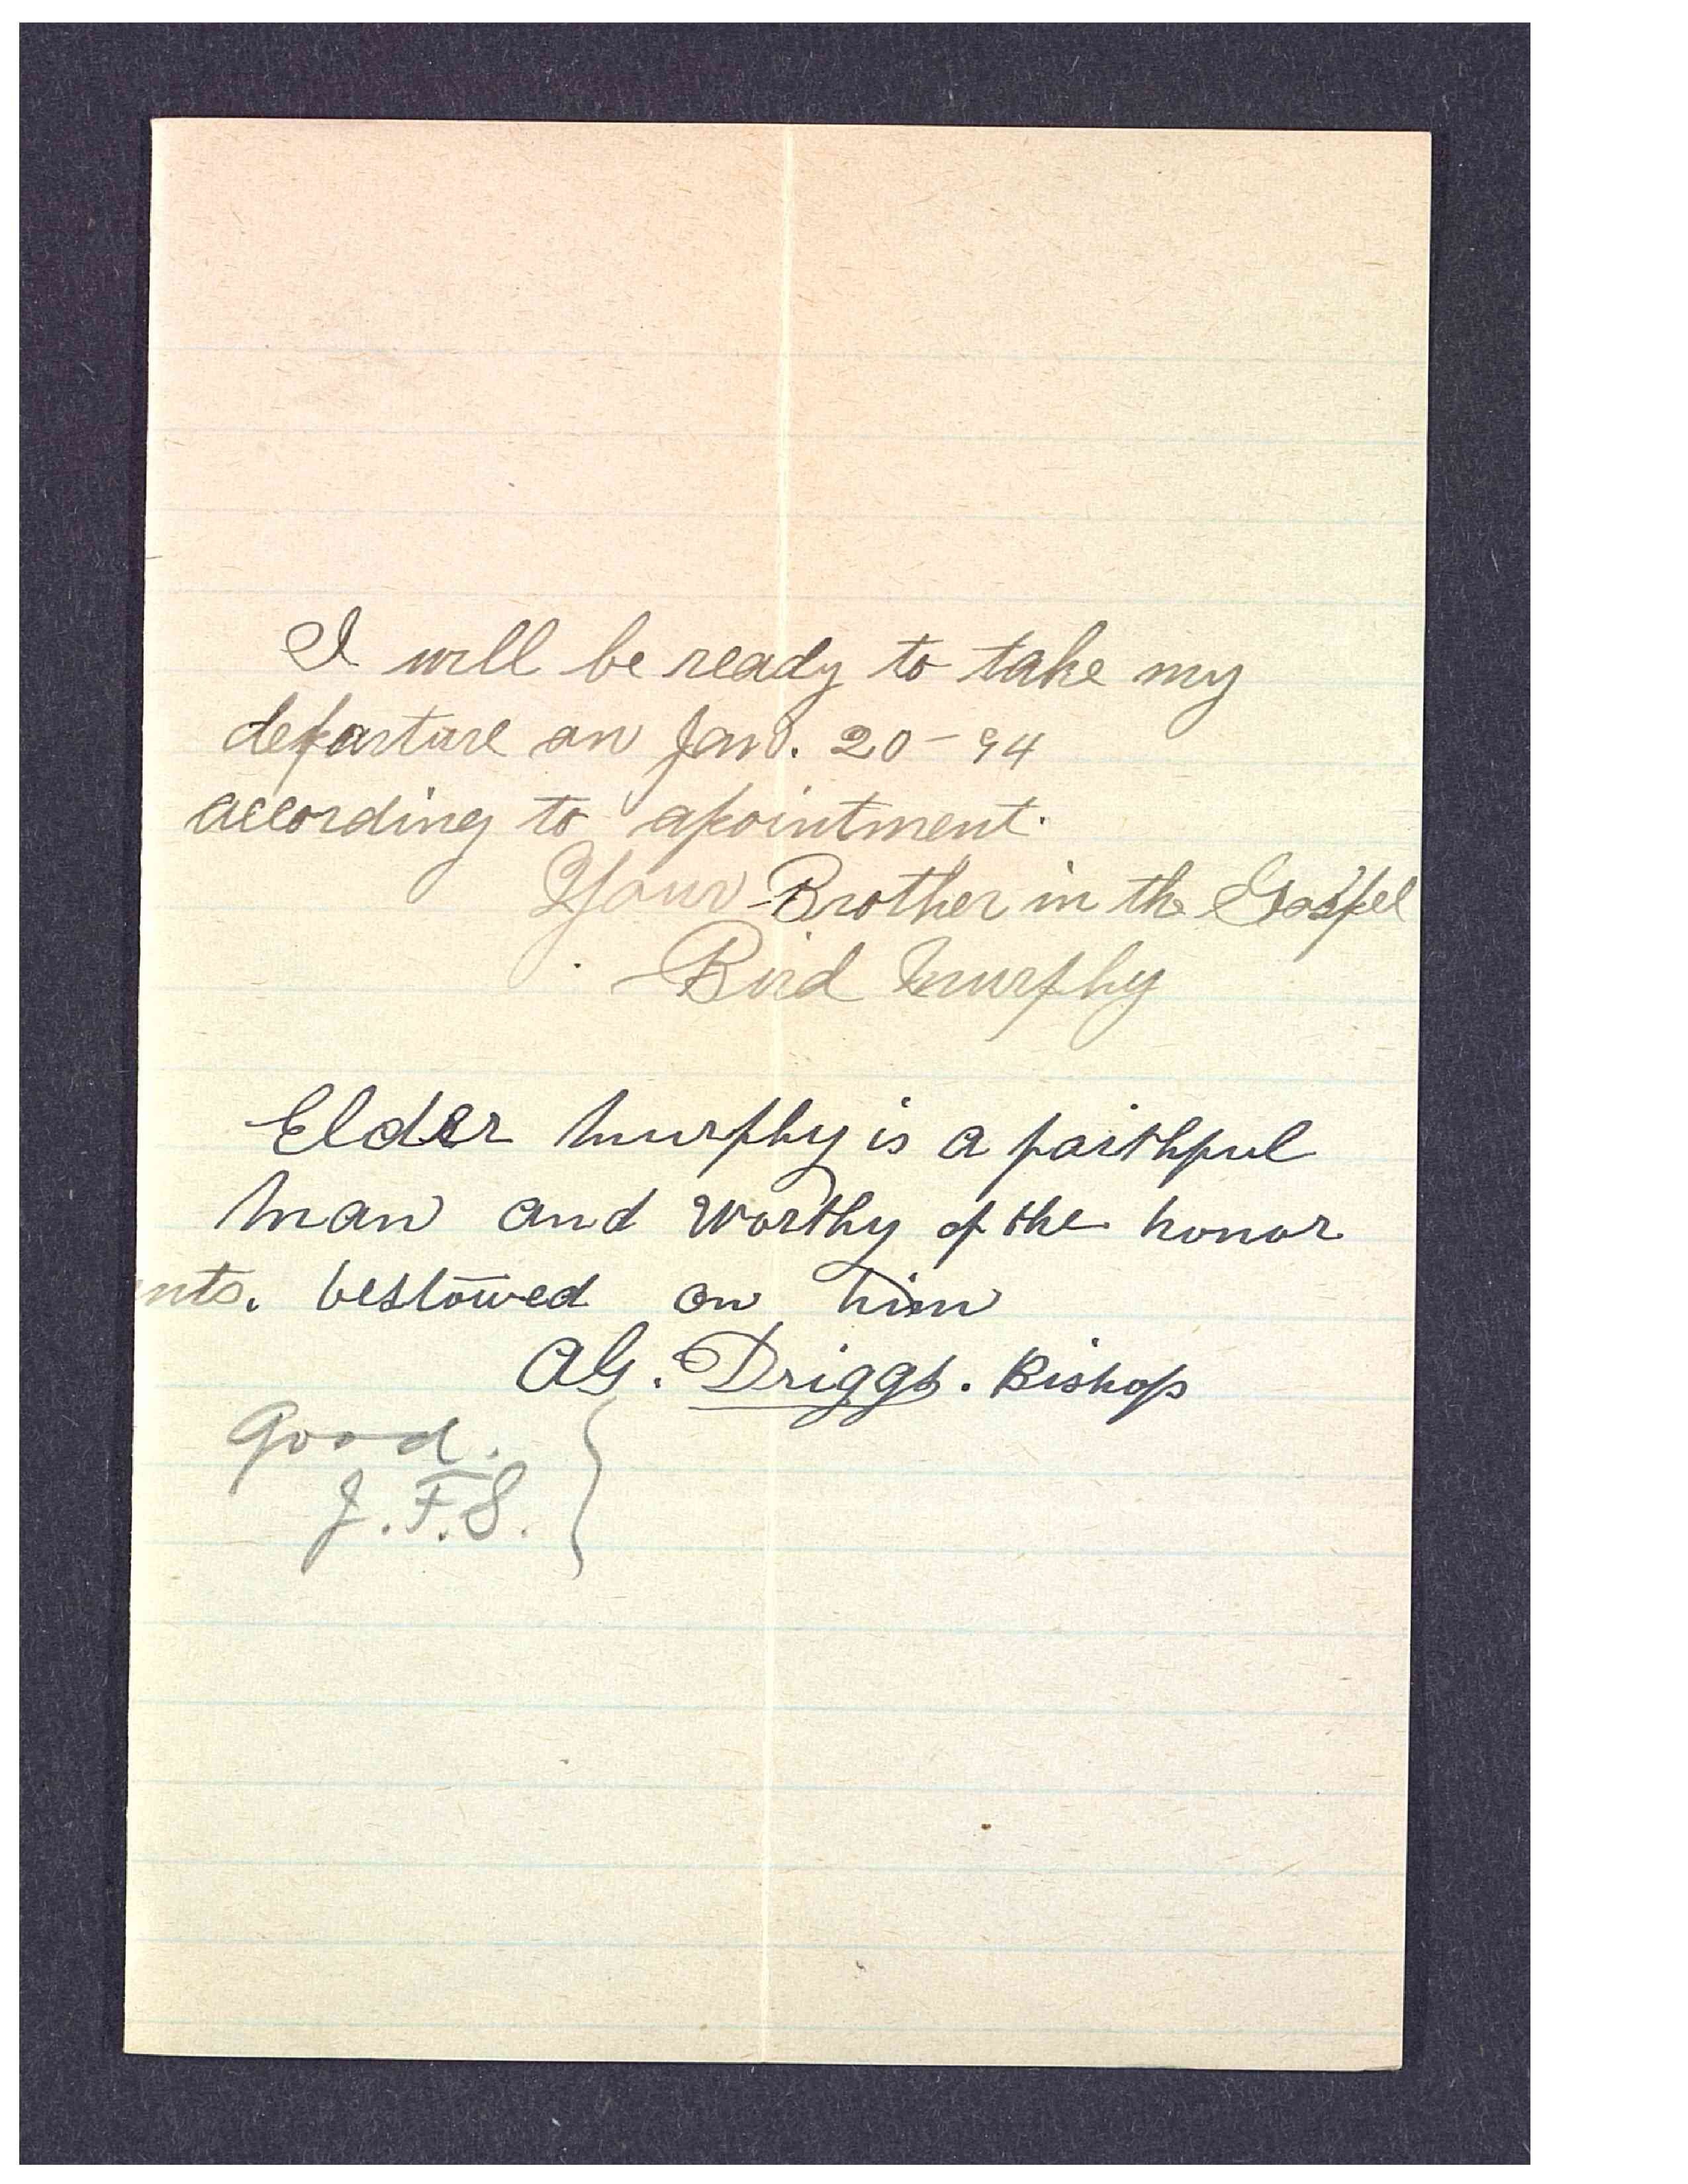 I will be ready to take my
departure on Jan. 20 - 94
according to apointment.
Your Brother in the Gospel
Bird Murphy
Elder Murphy is a faithful
man and worthy of the honor
nts. bestowed on him
AG. Driggs. Bishop
Good.
J.F.S.